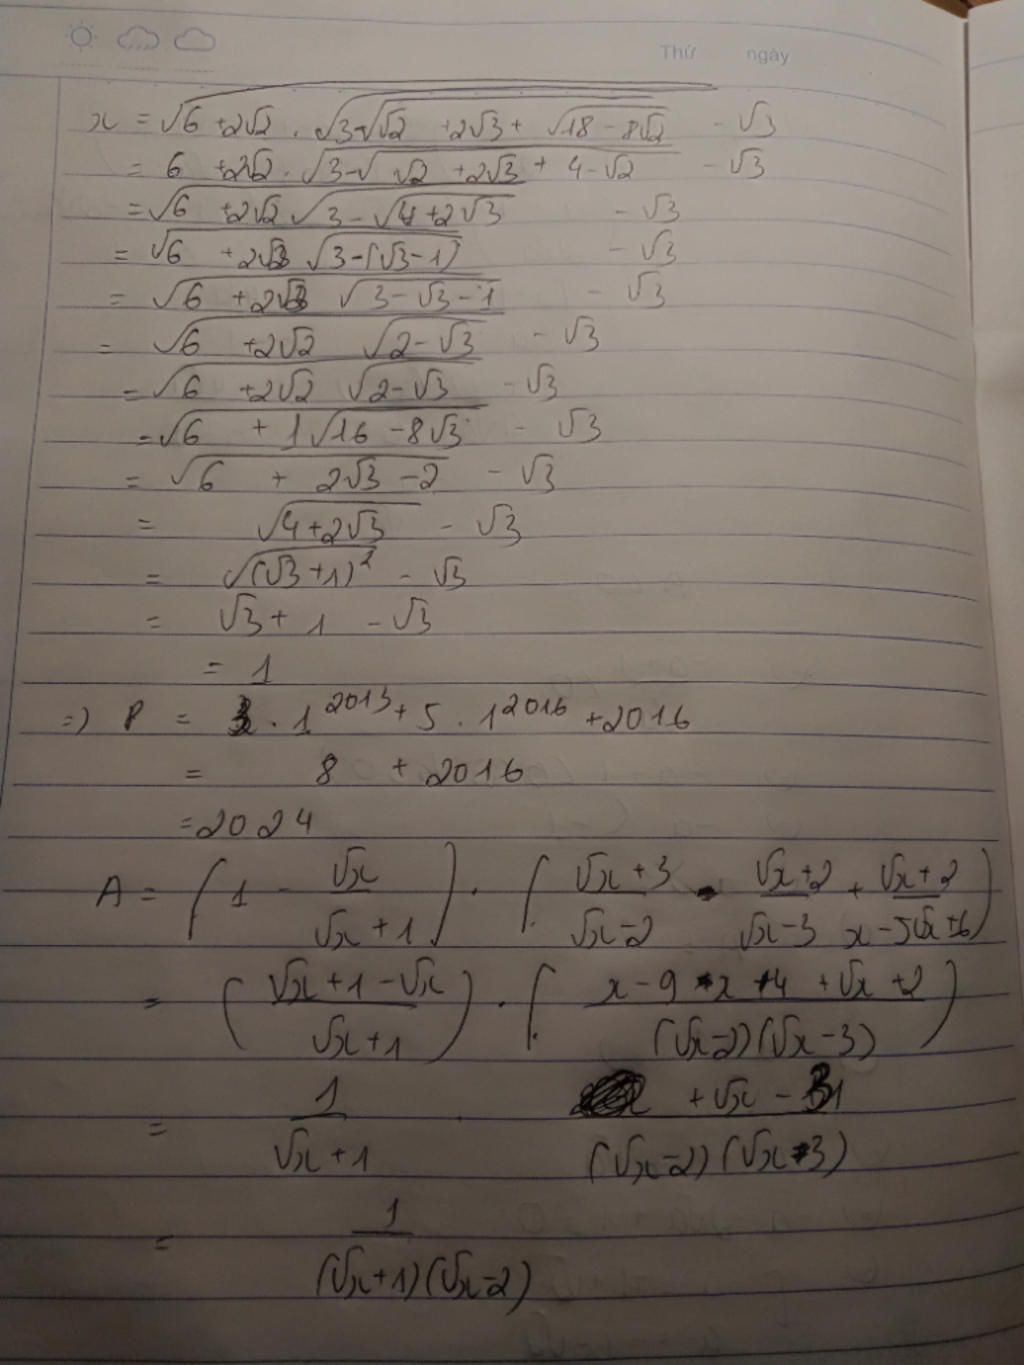 Thứ ngày
x = √6 + 2√2 . √3 - √√2 + 2√3 + √18 - 8√2 - √3
= 6 + 2√2 . √3 - √ √2 + 2√3 + 4 - √2 - √3
= √6 + 2√2 √3 - √4 + 2√3 - √3
= √6 + 2√2 √3 - (√3 - 1) - √3
= √6 + 2√2 √3 - √3 - 1 - √3
= √6 + 2√2 √2 - √3 - √3
= √6 + 2√2 √2 - √3 - √3
= √6 + 1√16 - 8√3 - √3
= √6 + 2√3 - 2 - √3
= √4 + 2√3 - √3
= √(√3 + 1)² - √3
= √3 + 1 - √3
= 1
=> P = 3 . 1^2013 + 5 . 1^2016 + 2016
= 8 + 2016
= 2024
A = (1 - √x / √x + 1) . (√x + 3 / √x - 2 - √x + 2 / √x - 3 + √x + 2 / x - 5√x + 6)
= (√x + 1 - √x / √x + 1) . (x - 9 - x + 4 + √x + 2 / (√x - 2)(√x - 3))
= 1 / √x + 1 . + √x - 3 / (√x - 2)(√x - 3)
= 1 / (√x + 1)(√x - 2)